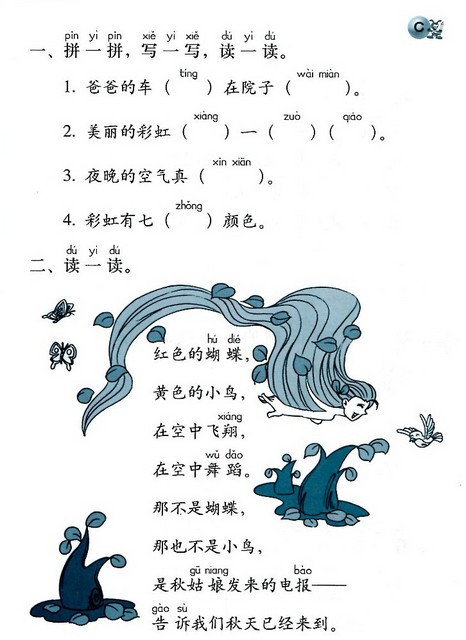 C
pīn yi pīn xiě yi xiě dú yi dú
一、拼一拼，写一写，读一读。
tíng wài miàn
1. 爸爸的车（ ）在院子（ ）。
xiàng zuò qiáo
2. 美丽的彩虹（ ）一（ ）（ ）。
xīn xiān
3. 夜晚的空气真（ ）。
zhǒng
4. 彩虹有七（ ）颜色。
dú yi dú
二、读一读。
hú dié
红色的蝴蝶，
黄色的小鸟，
xiáng
在空中飞翔，
wǔ dǎo
在空中舞蹈。
那不是蝴蝶，
那也不是小鸟，
gū niang bào
是秋姑娘发来的电报——
gào sù
告诉我们秋天已经来到。